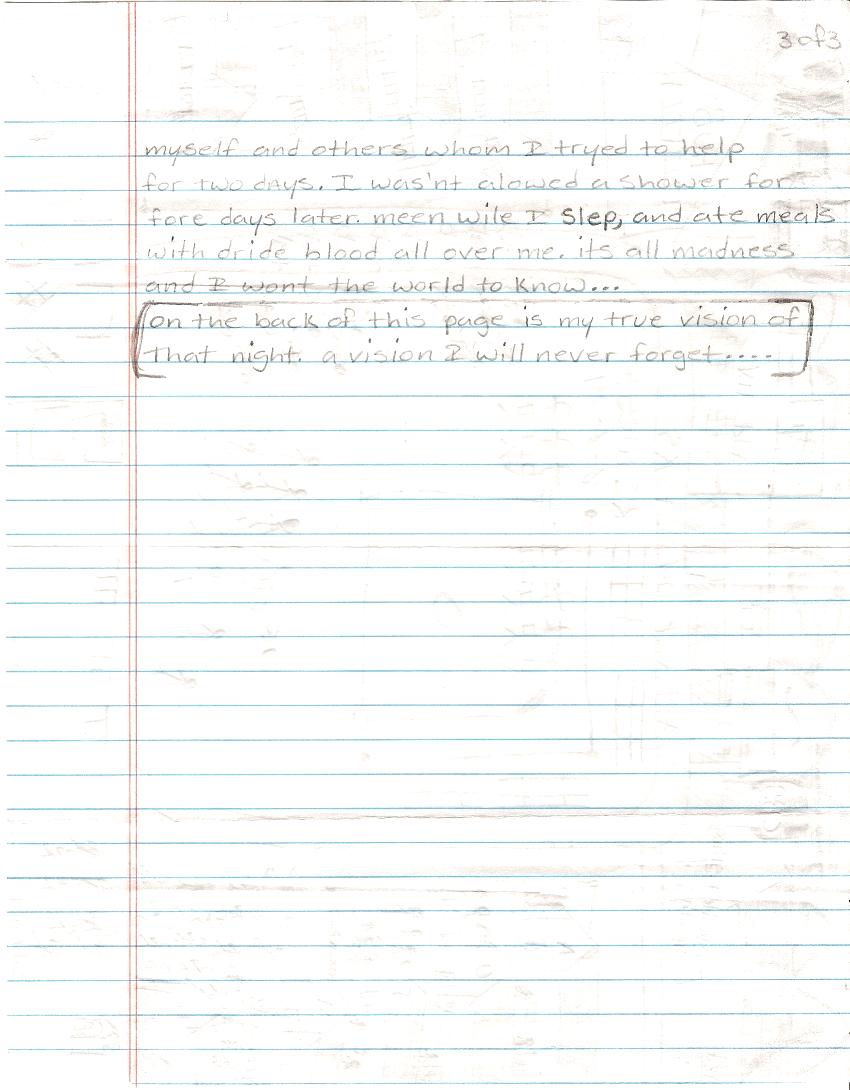 3 of 3
myself and others whom I tryed to help
for two days. I was'nt alowed a shower for
fore days later. meen wile I slep, and ate meals
with dride blood all over me. its all madness
and I wont the world to know...
on the back of this page is my true vision of
that night. a vision I will never forget....